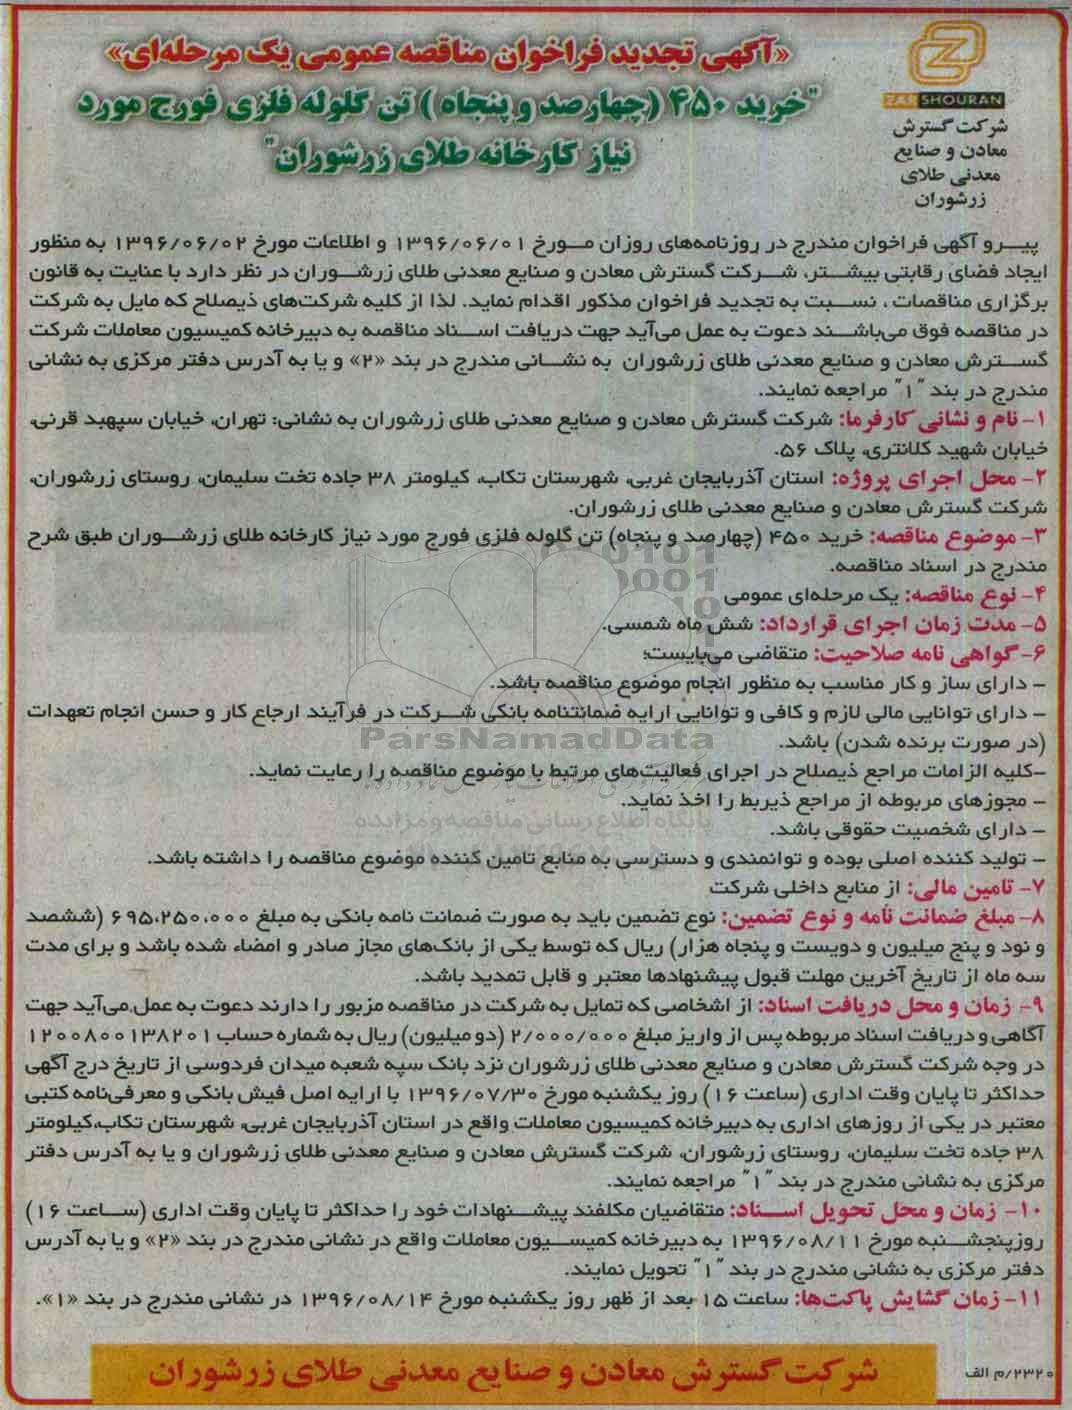 «آگهی تجدید فراخوان مناقصه عمومی یک مرحله‌ای»
"خرید ۴۵۰ (چهارصد و پنجاه ) تن گلوله فلزی فورج مورد
نیاز کارخانه طلای زرشوران"
ZARSHOURAN
شرکت گسترش
معادن و صنایع
معدنی طلای
زرشوران
پیـــرو آگهی فراخوان مندرج در روزنامه‌های روزان مــورخ ۱۳۹۶/۰۶/۰۱ و اطلاعات مورخ ۱۳۹۶/۰۶/۰۲ به منظور
ایجاد فضای رقابتی بیشــتر، شــرکت گسترش معادن و صنایع معدنی طلای زرشــوران در نظر دارد با عنایت به قانون
برگزاری مناقصات ، نســبت به تجدید فراخوان مذکور اقدام نماید. لذا از کلیه شرکت‌های ذیصلاح که مایل به شرکت
در مناقصه فوق می‌باشــند دعوت به عمل می‌آید جهت دریافت اســناد مناقصه به دبیرخانه کمیسیون معاملات شرکت
گســترش معادن و صنایع معدنی طلای زرشوران به نشــانی مندرج در بند «۲» و یا به آدرس دفتر مرکزی به نشانی
مندرج در بند "۱" مراجعه نمایند.
۱- نام و نشانی کارفرما: شرکت گسترش معادن و صنایع معدنی طلای زرشوران به نشانی: تهران، خیابان سپهبد قرنی،
خیابان شهید کلانتری، پلاک ۵۶.
۲- محل اجرای پروژه: استان آذربایجان غربی، شهرستان تکاب، کیلومتر ۳۸ جاده تخت سلیمان، روستای زرشوران،
شرکت گسترش معادن و صنایع معدنی طلای زرشوران.
۳- موضوع مناقصه: خرید ۴۵۰ (چهارصد و پنجاه) تن گلوله فلزی فورج مورد نیاز کارخانه طلای زرشــوران طبق شرح
مندرج در اسناد مناقصه.
۴- نوع مناقصه: یک مرحله‌ای عمومی
۵- مدت زمان اجرای قرارداد: شش ماه شمسی.
۶- گواهی نامه صلاحیت: متقاضی می‌بایست:
- دارای ساز و کار مناسب به منظور انجام موضوع مناقصه باشد.
- دارای توانایی مالی لازم و کافی و توانایی ارایه ضمانتنامه بانکی شــرکت در فرآیند ارجاع کار و حسن انجام تعهدات
(در صورت برنده شدن) باشد.
ParsNamadData
-کلیه الزامات مراجع ذیصلاح در اجرای فعالیت‌های مرتبط با موضوع مناقصه را رعایت نماید.
- مجوزهای مربوطه از مراجع ذیربط را اخذ نماید.
پایگاه اطلاع رسانی مناقصه و مزایده
- دارای شخصیت حقوقی باشد.
- تولید کننده اصلی بوده و توانمندی و دسترسی به منابع تامین کننده موضوع مناقصه را داشته باشد.
۷- تامین مالی: از منابع داخلی شرکت
۸- مبلغ ضمانت نامه و نوع تضمین: نوع تضمین باید به صورت ضمانت نامه بانکی به مبلغ ۶۹۵،۲۵۰،۰۰۰ (ششصد
و نود و پنج میلیون و دویست و پنجاه هزار) ریال که توسط یکی از بانک‌های مجاز صادر و امضاء شده باشد و برای مدت
سه ماه از تاریخ آخرین مهلت قبول پیشنهادها معتبر و قابل تمدید باشد.
۹- زمان و محل دریافت اسناد: از اشخاصی که تمایل به شرکت در مناقصه مزبور را دارند دعوت به عمل می‌آید جهت
آگاهی و دریافت اسناد مربوطه پس از واریز مبلغ ۲/۰۰۰/۰۰۰ (دو میلیون) ریال به شماره حساب ۱۲۰۰۸۰۰۱۳۸۲۰۱
در وجه شرکت گسترش معادن و صنایع معدنی طلای زرشوران نزد بانک سپه شعبه میدان فردوسی از تاریخ درج آگهی
حداکثر تا پایان وقت اداری (ساعت ۱۶) روز یکشنبه مورخ ۱۳۹۶/۰۷/۳۰ با ارایه اصل فیش بانکی و معرفی‌نامه کتبی
معتبر در یکی از روزهای اداری به دبیرخانه کمیسیون معاملات واقع در استان آذربایجان غربی، شهرستان تکاب،کیلومتر
۳۸ جاده تخت سلیمان، روستای زرشوران، شرکت گسترش معادن و صنایع معدنی طلای زرشوران و یا به آدرس دفتر
مرکزی به نشانی مندرج در بند "۱" مراجعه نمایند.
۱۰- زمان و محل تحویل اســناد: متقاضیان مکلفند پیشــنهادات خود را حداکثر تا پایان وقت اداری (ســاعت ۱۶)
روزپنجشــنبه مورخ ۱۳۹۶/۰۸/۱۱ به دبیرخانه کمیســیون معاملات واقع در نشانی مندرج در بند «۲» و یا به آدرس
دفتر مرکزی به نشانی مندرج در بند "۱" تحویل نمایند.
۱۱- زمان گشایش پاکت‌ها: ساعت ۱۵ بعد از ظهر روز یکشنبه مورخ ۱۳۹۶/۰۸/۱۴ در نشانی مندرج در بند «۱».
شرکت گسترش معادن و صنایع معدنی طلای زرشوران
۲۳۲۰/م الف